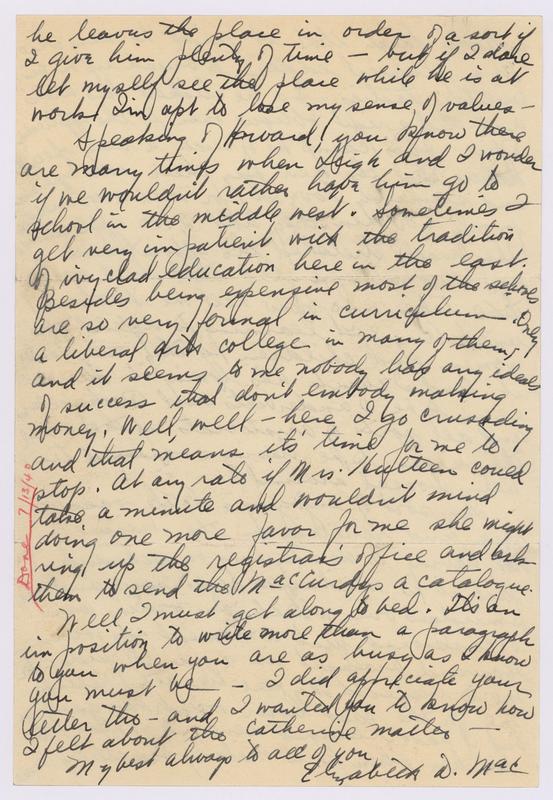 he leaves the place in order of a sort if
I give him plenty of time - but if I dare
let myself see the place while he is at
work I'm apt to lose my sense of values -
Speaking of Howard, you know there
are many things when Leigh and I wonder
if we wouldn't rather have him go to
school in the middle west. Sometimes I
get very impatient with the tradition
of ivy clad education here in the east.
Besides being expensive most of the schools
are so very formal in curriculum. Only
a liberal arts college in many of them,
and it seems to me nobody has any ideas
of success that don't embody making
money. Well, well - here I go crusading
and that means it's time for me to
stop. At any rate if Mrs. Hulteen could
take a minute and wouldn't mind
doing one more favor for me she might
ring up the registrar's office and ask
them to send the MacCurdys a catalogue.
Well I must get along to bed. It's an
imposition to write more than a paragraph
to you when you are as busy as I know
you must be - I did appreciate your
letter tho - and I wanted you to know how
I felt about the Catherine matter -
My best always to all of you,
Elizabeth D. Mac
Done 7/13/40